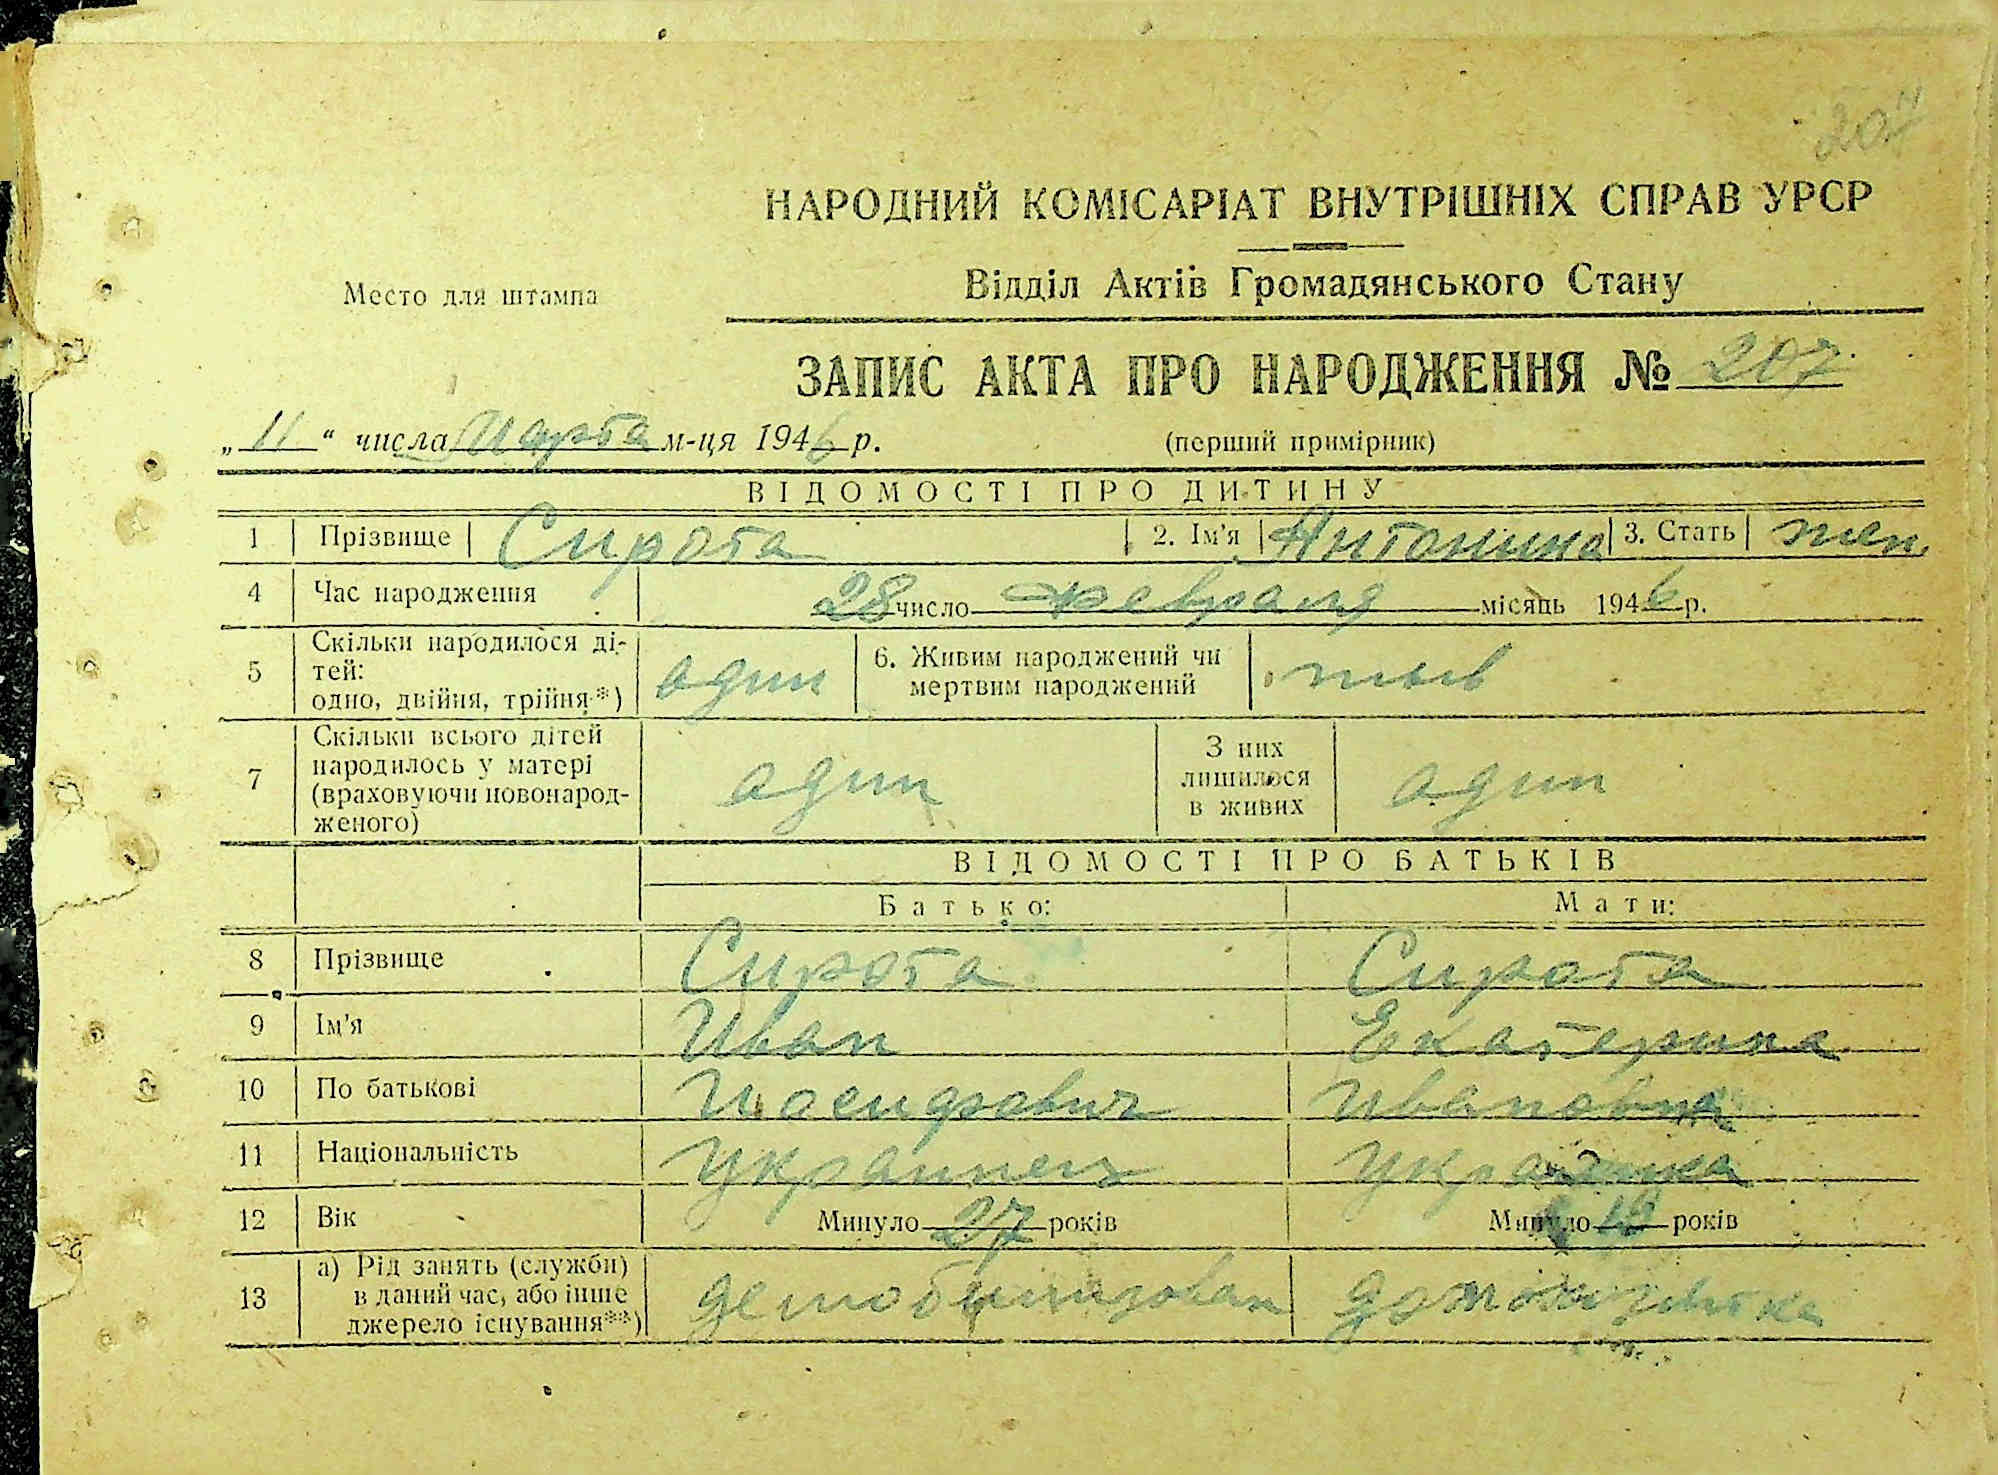 207
НАРОДНИЙ КОМІСАРІАТ ВНУТРІШНІХ СПРАВ УРСР
Место для штампа
Відділ Актів Громадянського Стану
ЗАПИС АКТА ПРО НАРОДЖЕННЯ № 207
„11“ числа Марта м-ця 1946 р. (перший примірник)
ВІДОМОСТІ ПРО ДИТИНУ
1 Прізвище Сирота 2. Ім'я Антонина 3. Стать жен.
4 Час народження 28 число февраля місяць 1946 р.
5 Скільки народилося ді-
тей:
одно, двійня, трійня*) один 6. Живим народжений чи
мертвим народжений жив
7 Скільки всього дітей
народилось у матері
(враховуючи новонарод-
женого) один З них
лишилося
в живих один
ВІДОМОСТІ ПРО БАТЬКІВ
Батько: Мати:
8 Прізвище Сирота Сирота
9 Ім'я Иван Екатерина
10 По батькові Иосифович Ивановна
11 Національність Украинец Украинка
12 Вік Минуло 27 років Минуло 19 років
13 а) Рід занять (служби)
в даний час, або інше
джерело існування**) демобилизован домохозяйка